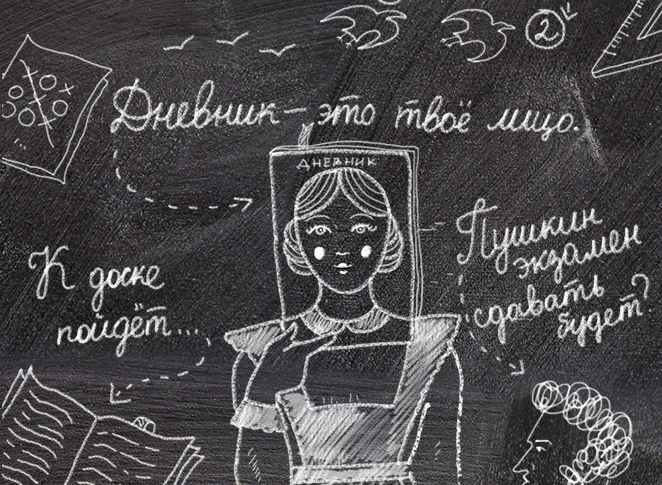 2
Дневник – это твоё лицо.
ДНЕВНИК
К доске
пойдёт...
Пушкин
экзамен
сдавать
будет?